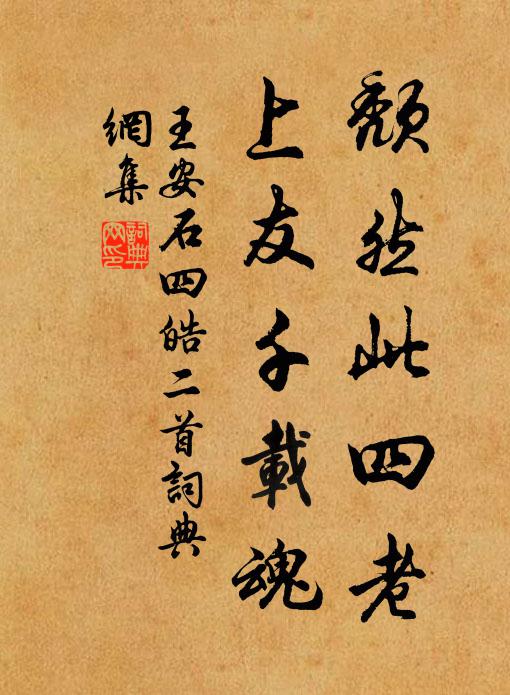 頽然此四老
上友千載魂
王安石四皓二首詞典
網集
詞典
网印